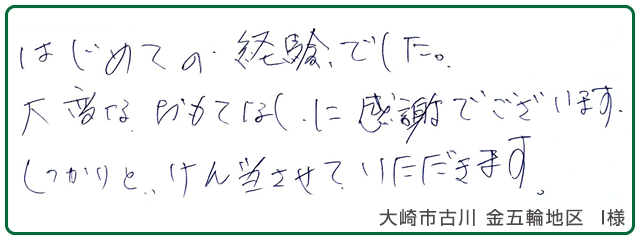 はじめての経験でした。
大変なおもてなしに感謝でございます。
しっかりと、けん当させていただきます。
大崎市古川 金五輪地区 I様